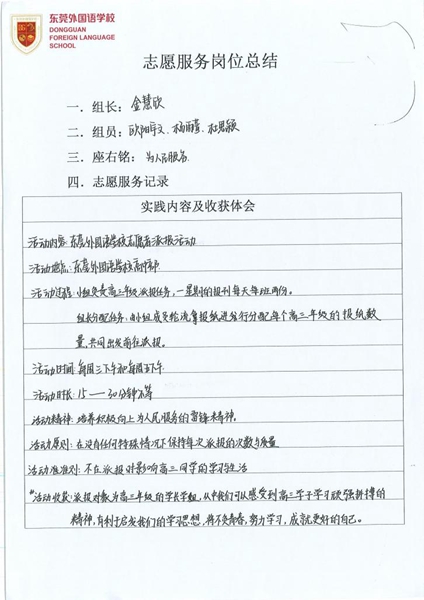 东莞外国语学校
DONGGUAN
FOREIGN LANGUAGE
SCHOOL
志愿服务岗位总结
一．组长：金慧欣
二．组员：欧阳宇文、杨雨霏、杜思颖
三．座右铭：为人民服务
四．志愿服务记录
实践内容及收获体会
活动内容：东莞外国语学校志愿者派报活动
活动地点：东莞外国语学校高中部
活动过程：小组负责高三年级派报任务，一星期的报刊每天每班两份。
组长分配任务，由小组成员轮流拿报纸进行分配每个高三年级的报纸数
量，共同出发前往派报。
活动时间：每周三下午和每周五下午
活动时长：15—30分钟不等
活动精神：培养积极向上为人民服务的雷锋精神。
活动原则：在没有任何特殊情况下保持每次派报的次数与质量
活动准则：不在派报时影响高三同学的学习与生活
*活动收获：派报对象为高三年级的学长学姐，从中我们可以感受到高三学子学习顽强拼搏的
精神，有利于启发我们的学习思想，将不负青春，努力学习，成就更好的自己。